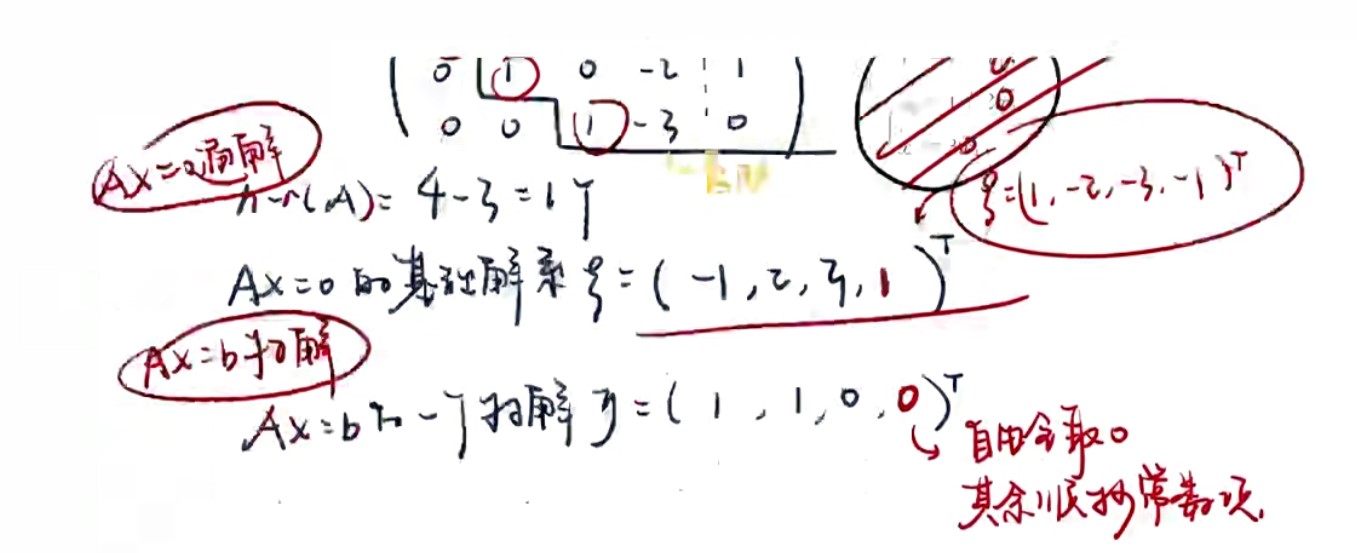 0 1 0 -2 1
0 0 1 -3 0
Ax=0通解
n-r(A)=4-3=1个
ξ=(1,-2,-3,-1)ᵀ
Ax=0的基础解系ξ=(-1,2,3,1)ᵀ
Ax=b特解
Ax=b的一个特解η=(1,1,0,0)ᵀ
自由全取0
其余顺抄常数项.